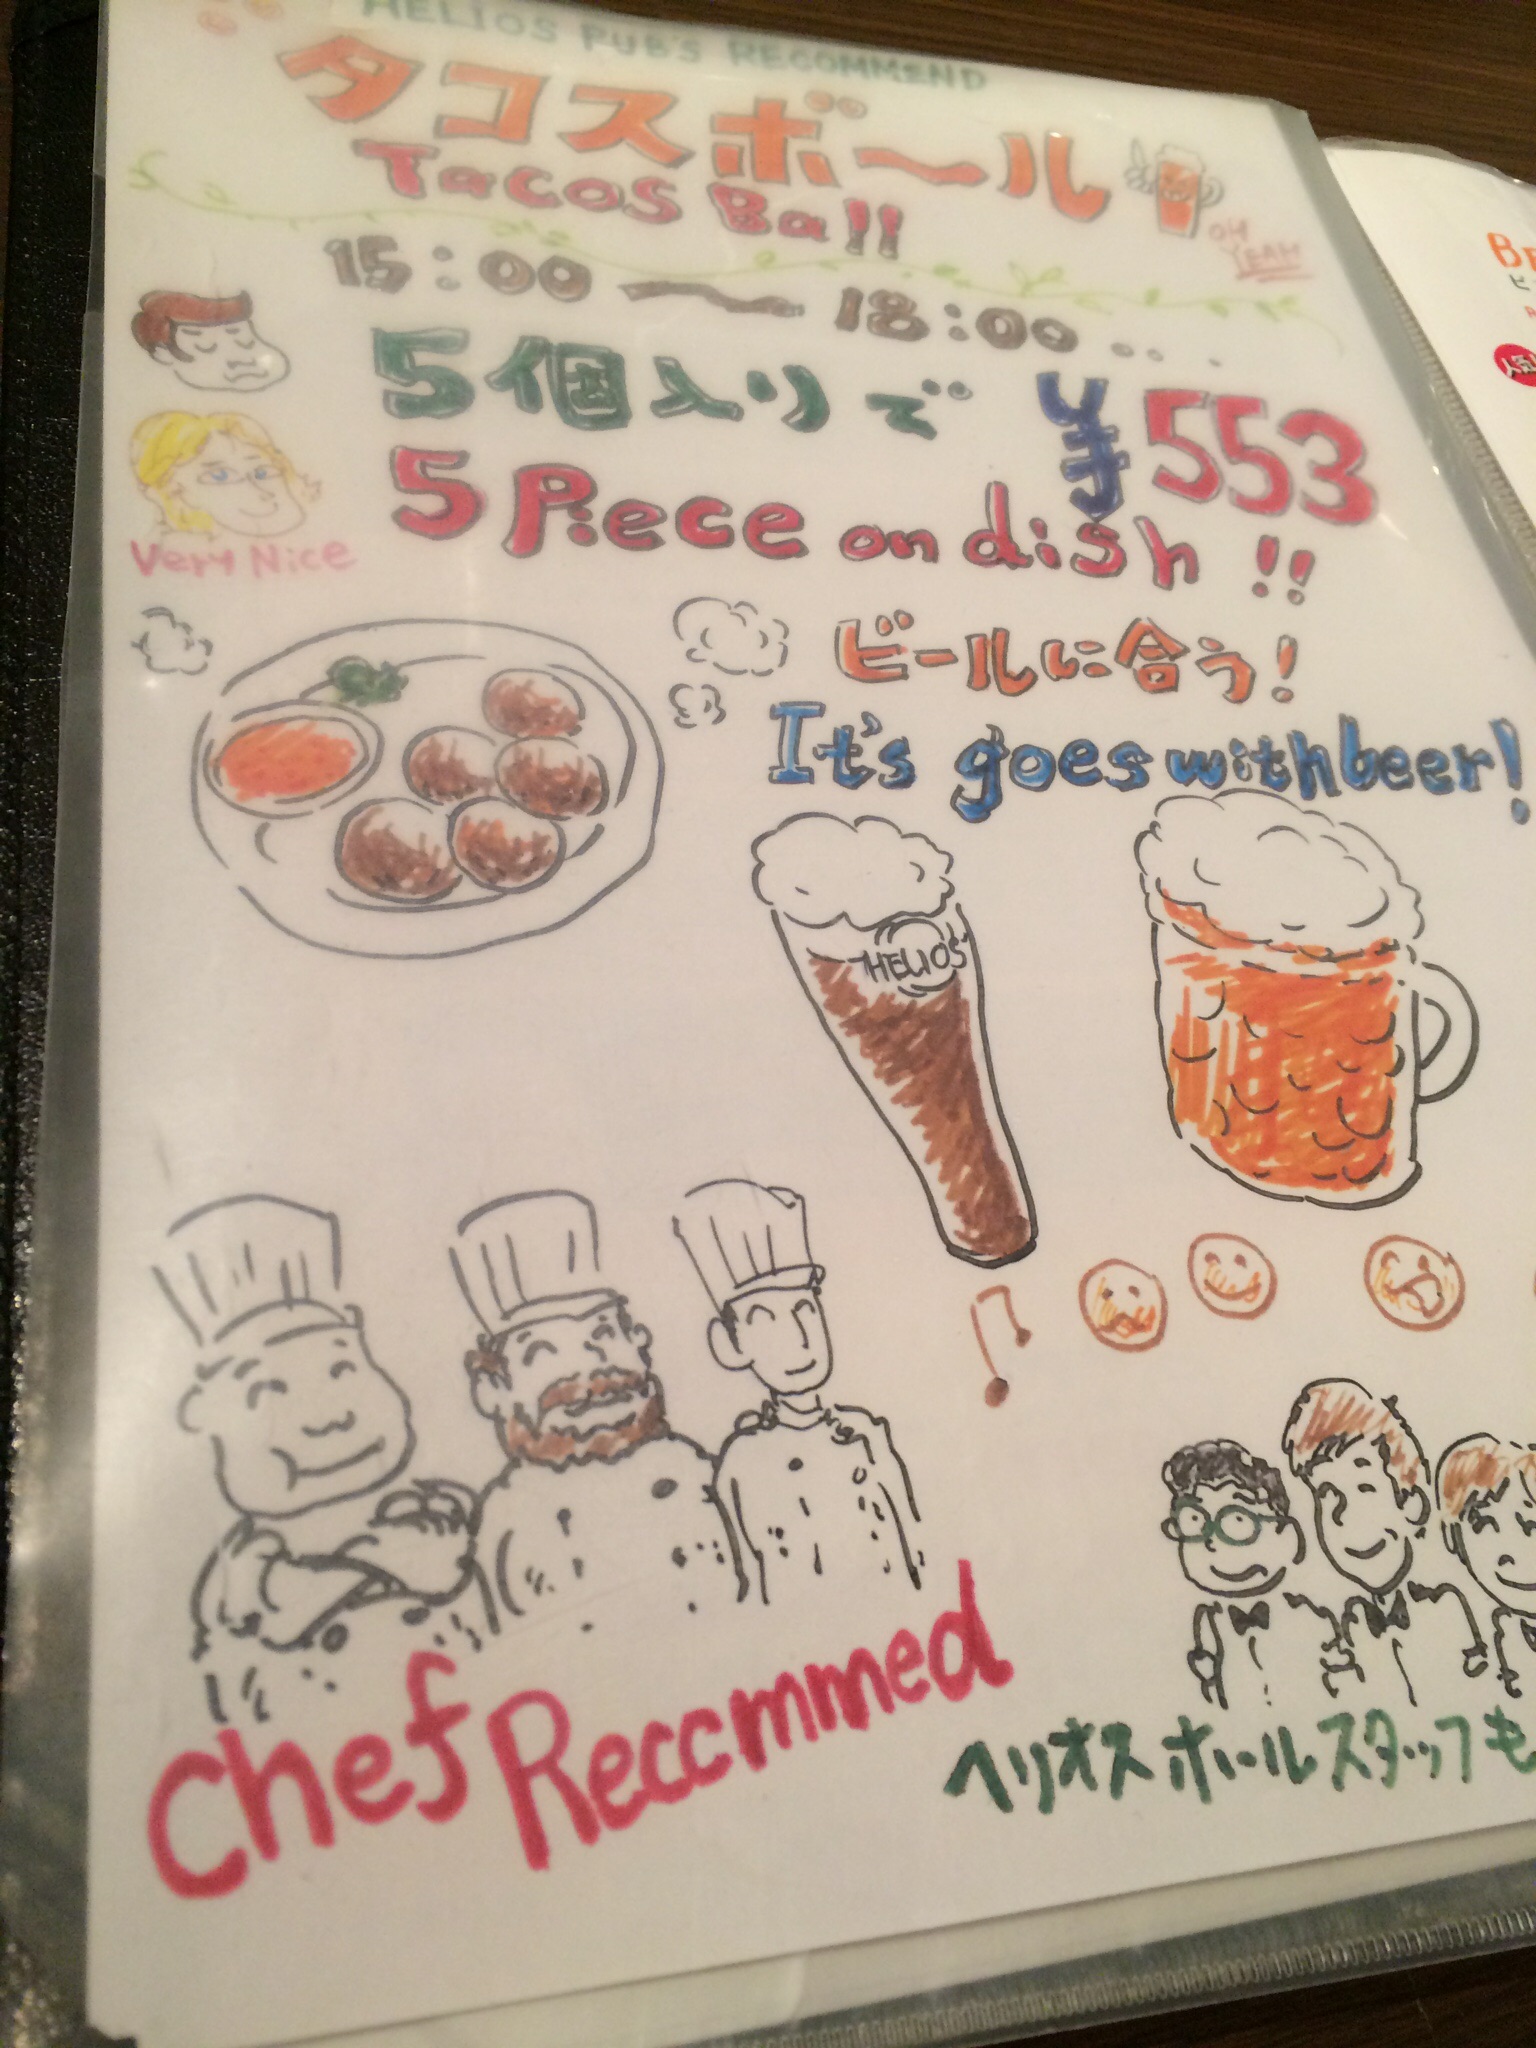 HELIOS PUB'S RECOMMEND
タコスボ〜ル
Tacos Ball
OH
YEAH
15:00 〜 18:00 ...
5個入りで ¥553
5 Piece on dish !!
Very Nice
ビールに合う!
It's goes with beer!
HELIOS
Chef Recommed
ヘリオスホールスタッフも